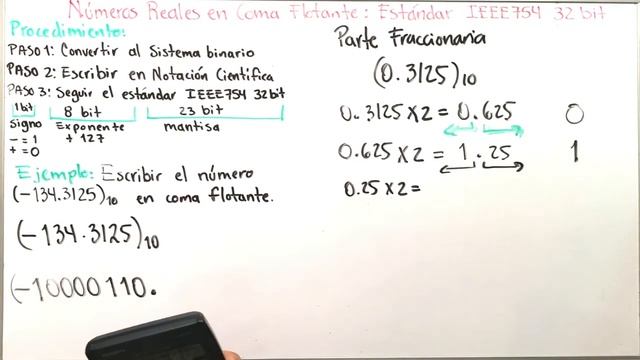 Números Reales en Coma Flotante: Estándar IEEE754 32 bit
Procedimiento:
PASO 1: Convertir al Sistema binario
PASO 2: Escribir en Notación Científica
PASO 3: Seguir el estándar IEEE754 32bit
1bit 8 bit 23 bit
Signo Exponente mantisa
- = 1 + 127
+ = 0
Ejemplo: Escribir el número
(-134.3125)10 en coma flotante.
(-134.3125)10
(-10000110.
Parte Fraccionaria
(0.3125)10
0.3125 x 2 = 0.625 0
0.625 x 2 = 1.25 1
0.25 x 2 =